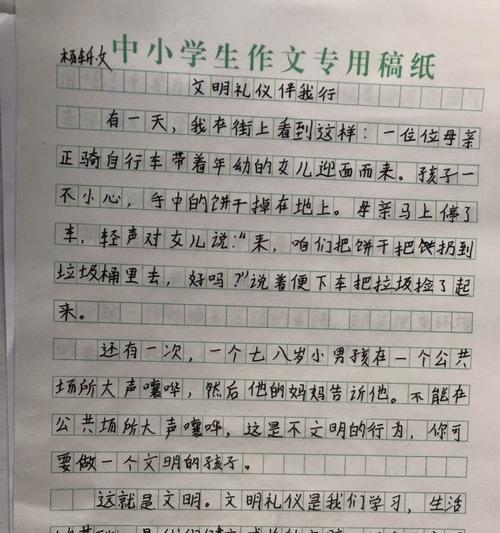 中小学生作文专用稿纸
文明礼仪伴我行
有一天，我在街上看到这样：一位位母亲
正骑自行车带着年幼的女儿迎面而来。孩子一
不小心，手中的饼干掉在地上。母亲马上停了
车，轻声对女儿说：“来，咱们把饼干把饼扔到
垃圾桶里去，好吗？”说着便下车把垃圾捡了起
来。
还有一次，一个七八岁小男孩在一个公共
场所大声嚷哗，然后他的妈妈告诉他。不能在
公共场所大声嚷哗，这是不文明的行为，你可
要做一个文明的孩子。
这就是文明。文明礼仪是我们学习，生活